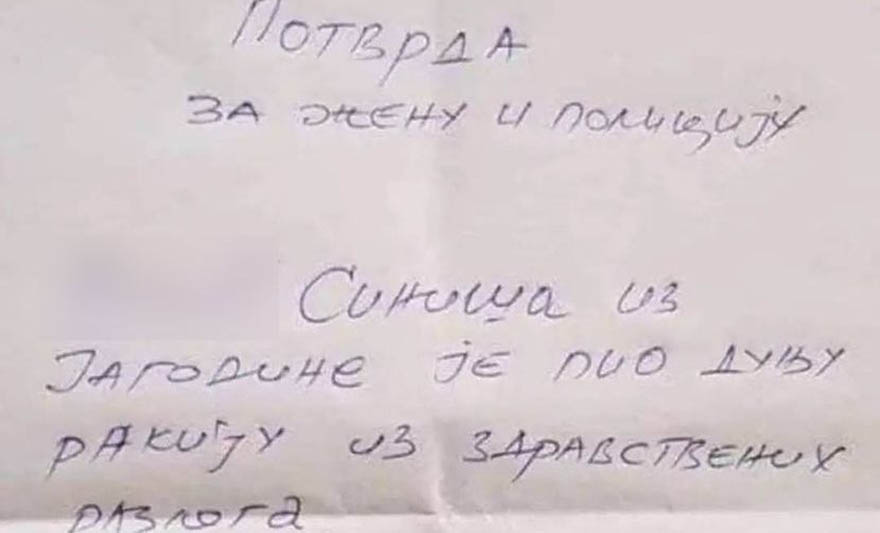 Потврда
за жену и полицију
Синиша из
Јагодине је пио дуњу
ракију из здравствених
разлога